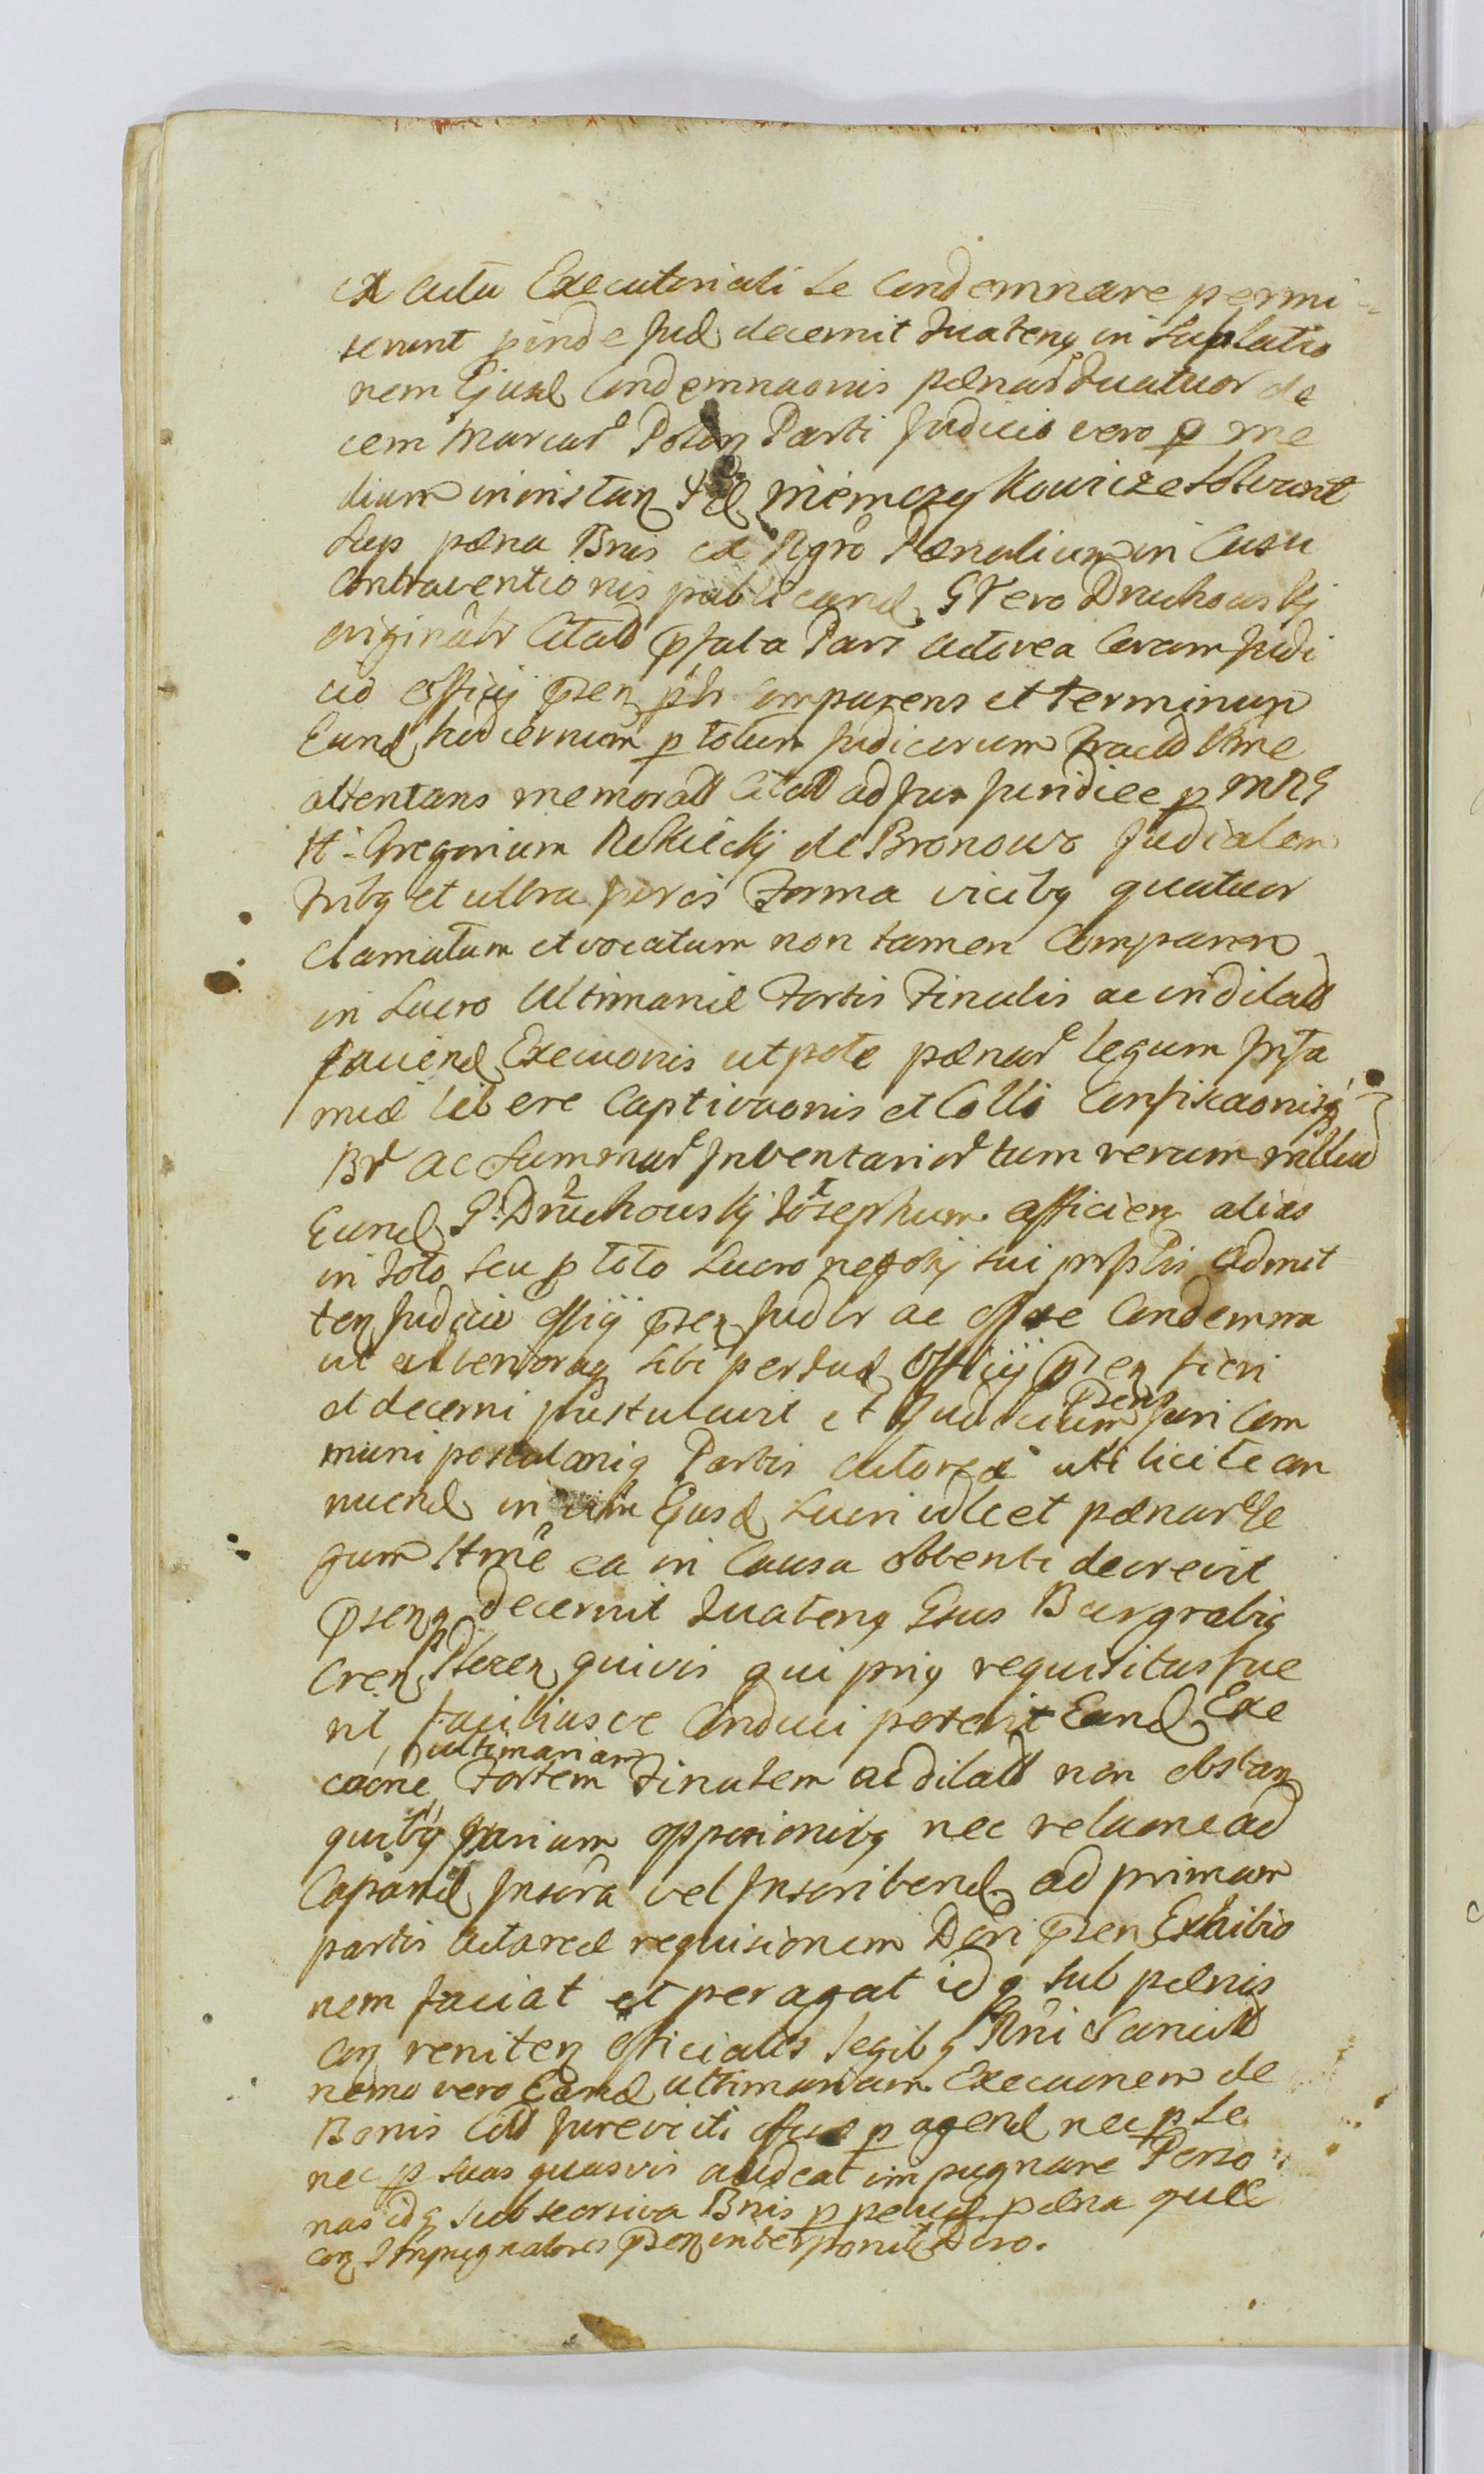 ex Actu Executoriali se Condemnare permi
serunt proinde Jud decernit quatenq in sublatio
nem Ejusd Condemnaonis pænar quatuor de
cem Marcar Polon Parti Judicio vero p me
dium in instan Niemczykowicze solvant
sup pæna Bnis ex Rgro Pænalium in Casu
Contraventionis publicand, G Vero Druchowskj
originalr Citato psata Pars Actorea Coram Judi
cio Officij psen plr Comparens et terminum
Eund hodiernum p totum Judiciorum tractum
attentans memorat Citat ad Jus Juridice p MRG
H. Gregorium Rekieckj de Bronowo Judialem
tribq et ultra Juris Forma vicibq quatuor
Clamatum et vocatum non tamen Comparen
in Lucro Ultimarié Fortis Finalis ac indilat
faciend Execuonis utpote pænar legum Infa
miæ libere Captivaonis et Colli Confiscaonisq
Br ac Summar Inventarior tum rerum
Eund G. Druchowskj Josephum afficien alias
in toto seu p toto Lucro negotij sui admit
ten Judicio Offij psen Judlr ac Condemna
vit sibi per Jud Officij psen fieri
et decerni postulavit et Judicium psens Juri Com
muni postulaoniq Partis Actoreæ uti licite an
nuend in Ejusd Lucri et pænar le
gum ea in Causa obtenti decrevit
psenq decernit quatenq Gsus Burgrabiq
Cren quivis qui priq requisitus fue
rit, faciliusve Conduci poterit Eand Exe
caone, ultimariam Fortem Finalem ac dilat non obstan
quibq Parium opposionibq nec relaone ad
Capand Inscra vel Inscribend ad primam
partis Actoreæ requisionem Dcri psen Exhibio
nem faciat et peragat idq sub pænis
con reniten officiales legibq Rni Sancit
nemo vero Eand ultimariam Execuonem de
Bonis Citt Jurevicti p agend nec p se
nec p suas quasvis audeat impugnare Perso
nas idq sub seorsiva Bnis p pæna quæ
con Impugnatores psen interponit Dcro.